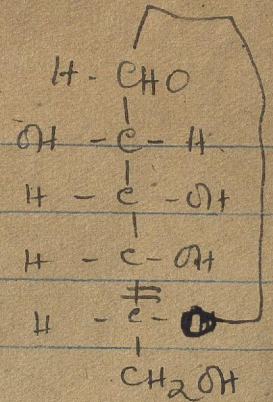 H - CHO
OH - C - H
H - C - OH
H - C - OH
H - C - O
CH2OH